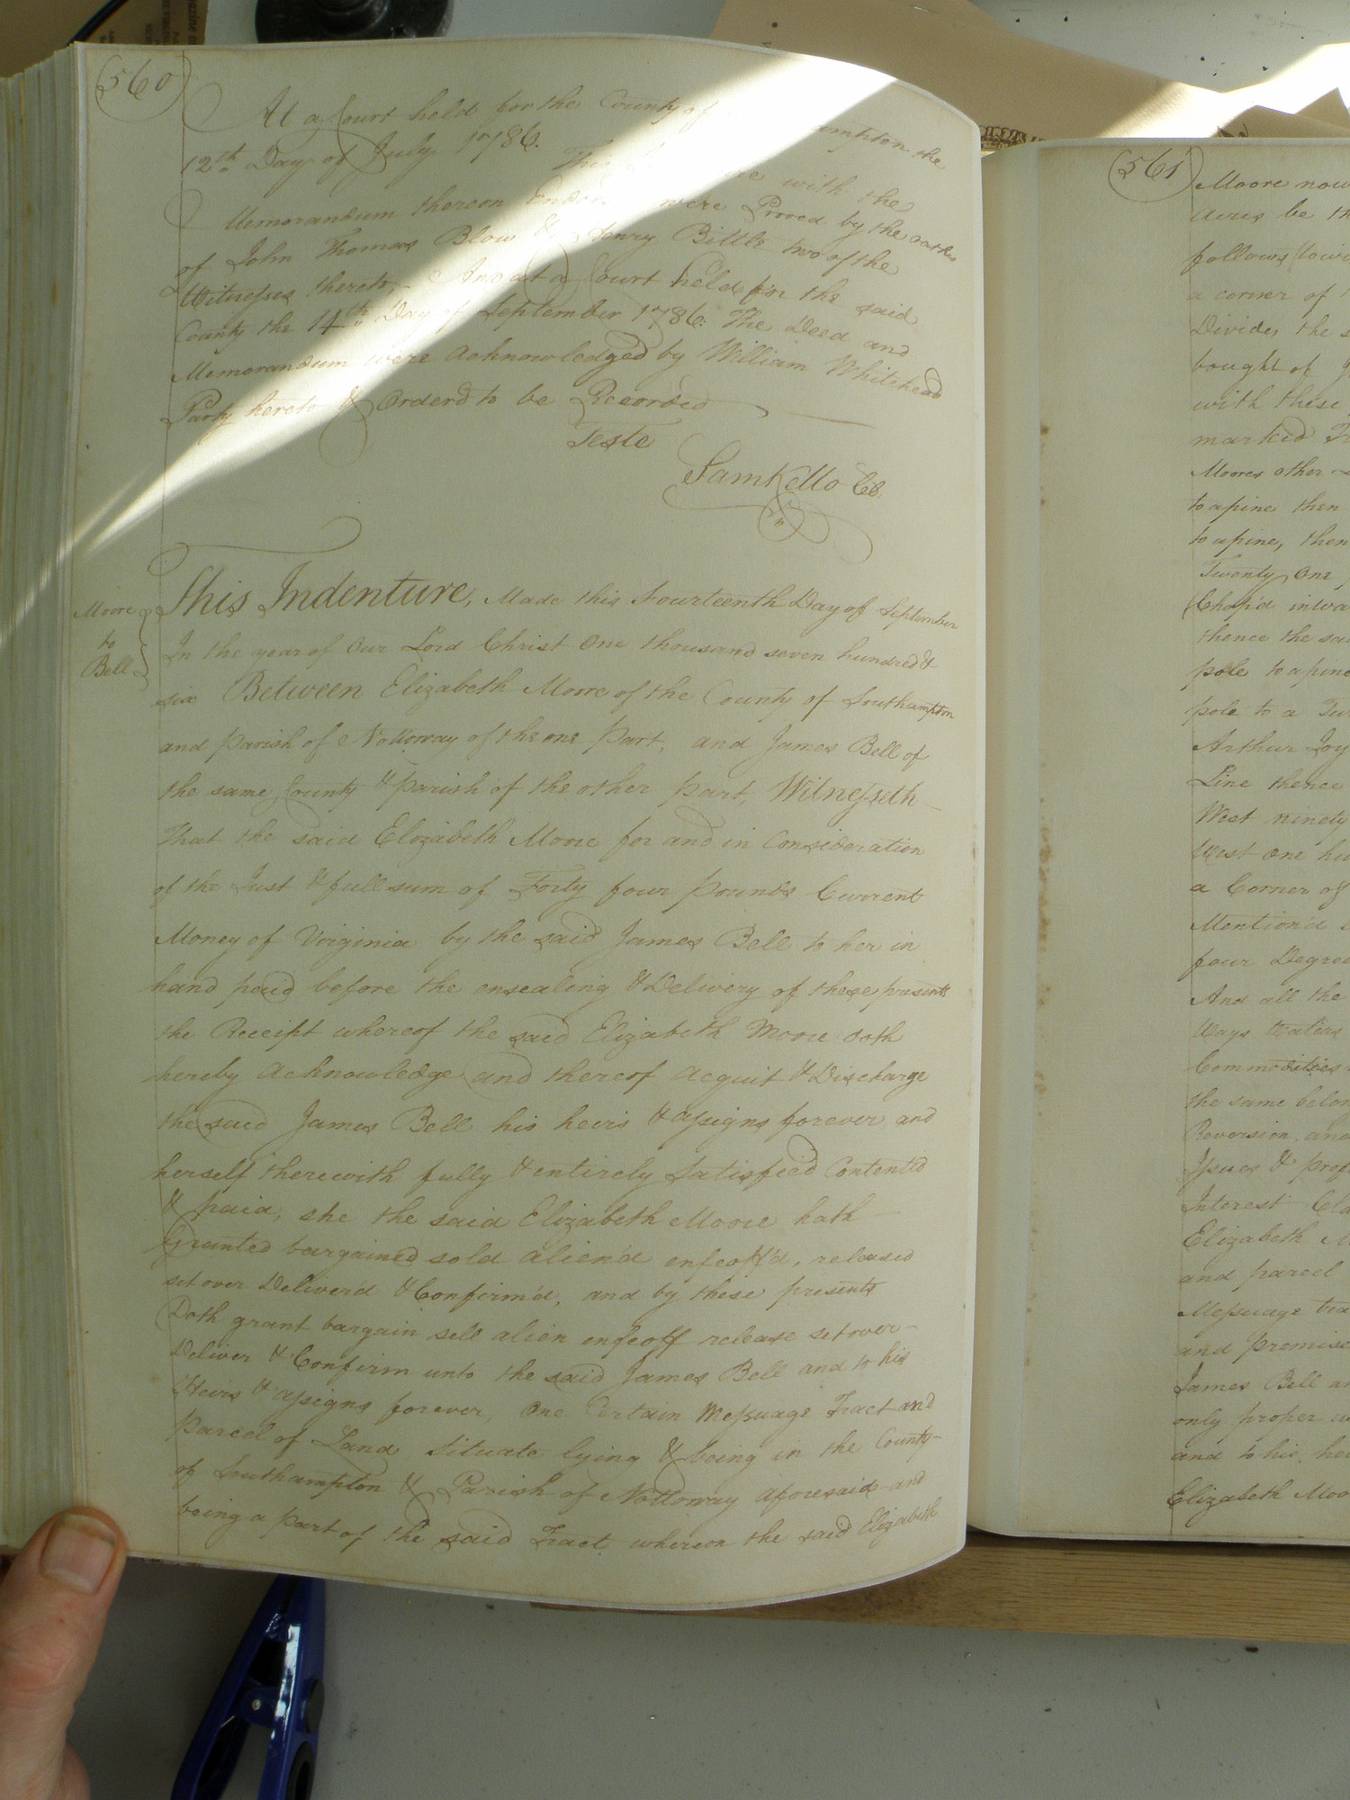 560
At a Court held for the County of mpton the
12th Day of July 1786. This with the
Memorandum thereon were Proved by the oaths
of John Thomas Blow & Henry Bittle two of the
Witnesses thereto And at a Court held for the said
County the 14th Day of September 1786. The Deed and
Memorandum were Acknowledged by William Whitehead
Party hereto & Orderd to be Recorded
Teste
Sam Kello CC.
Moore
to
Bell
This Indenture, Made this Fourteenth Day of September
In the year of Our Lord Christ One thousand seven hundred &
six Between Elizabeth Moore of the County of Southampton
and parish of Nottoway of the one Part, and James Bell of
the same County & parish of the other Part, Witnesseth
That the said Elizabeth Moore for and in Consideration
of the Just & full sum of Forty four Pounds Current
Money of Virginia by the said James Bell to her in
hand paid before the ensealing & Delivery of these presents
the Receipt whereof the said Elizabeth Moore doth
hereby Acknowledge and thereof acquit & Discharge
the said James Bell his heirs & assigns forever and
herself therewith fully & entirely Satisfied Contented
& paid, she the said Elizabeth Moore hath
Granted bargained sold alien'd enfeoff'd, released
set over Deliver'd & Confirm'd, and by these presents
Doth grant bargain sell alien enfeoff release set over
Deliver & Confirm unto the said James Bell and to his
Heirs & assigns forever, One Certain Messuage Tract and
Parcel of Land Situate lying & being in the County
of Southampton & Parish of Nottoway aforesaid and
being a part of the said Tract whereon the said Elizabeth
561
Moore now
acres be th
follows (towi
a corner of
Divides the s
bought of
with these
marked
Moores other
to a pine then
to a pine, then
Twenty One
Chap'd inwa
thence the sa
pole to a pine
pole to a
Arthur Joy
Line thence
West ninety
West One hu
a Corner of
Mention'd
four Degree
And all the
Ways Waters
Commodities
the same belon
Reversion, and
Issues & prof
Interest Cla
Elizabeth M
and parcel
Messuage tra
and premise
James Bell an
only proper u
and to his hei
Elizabeth Moo